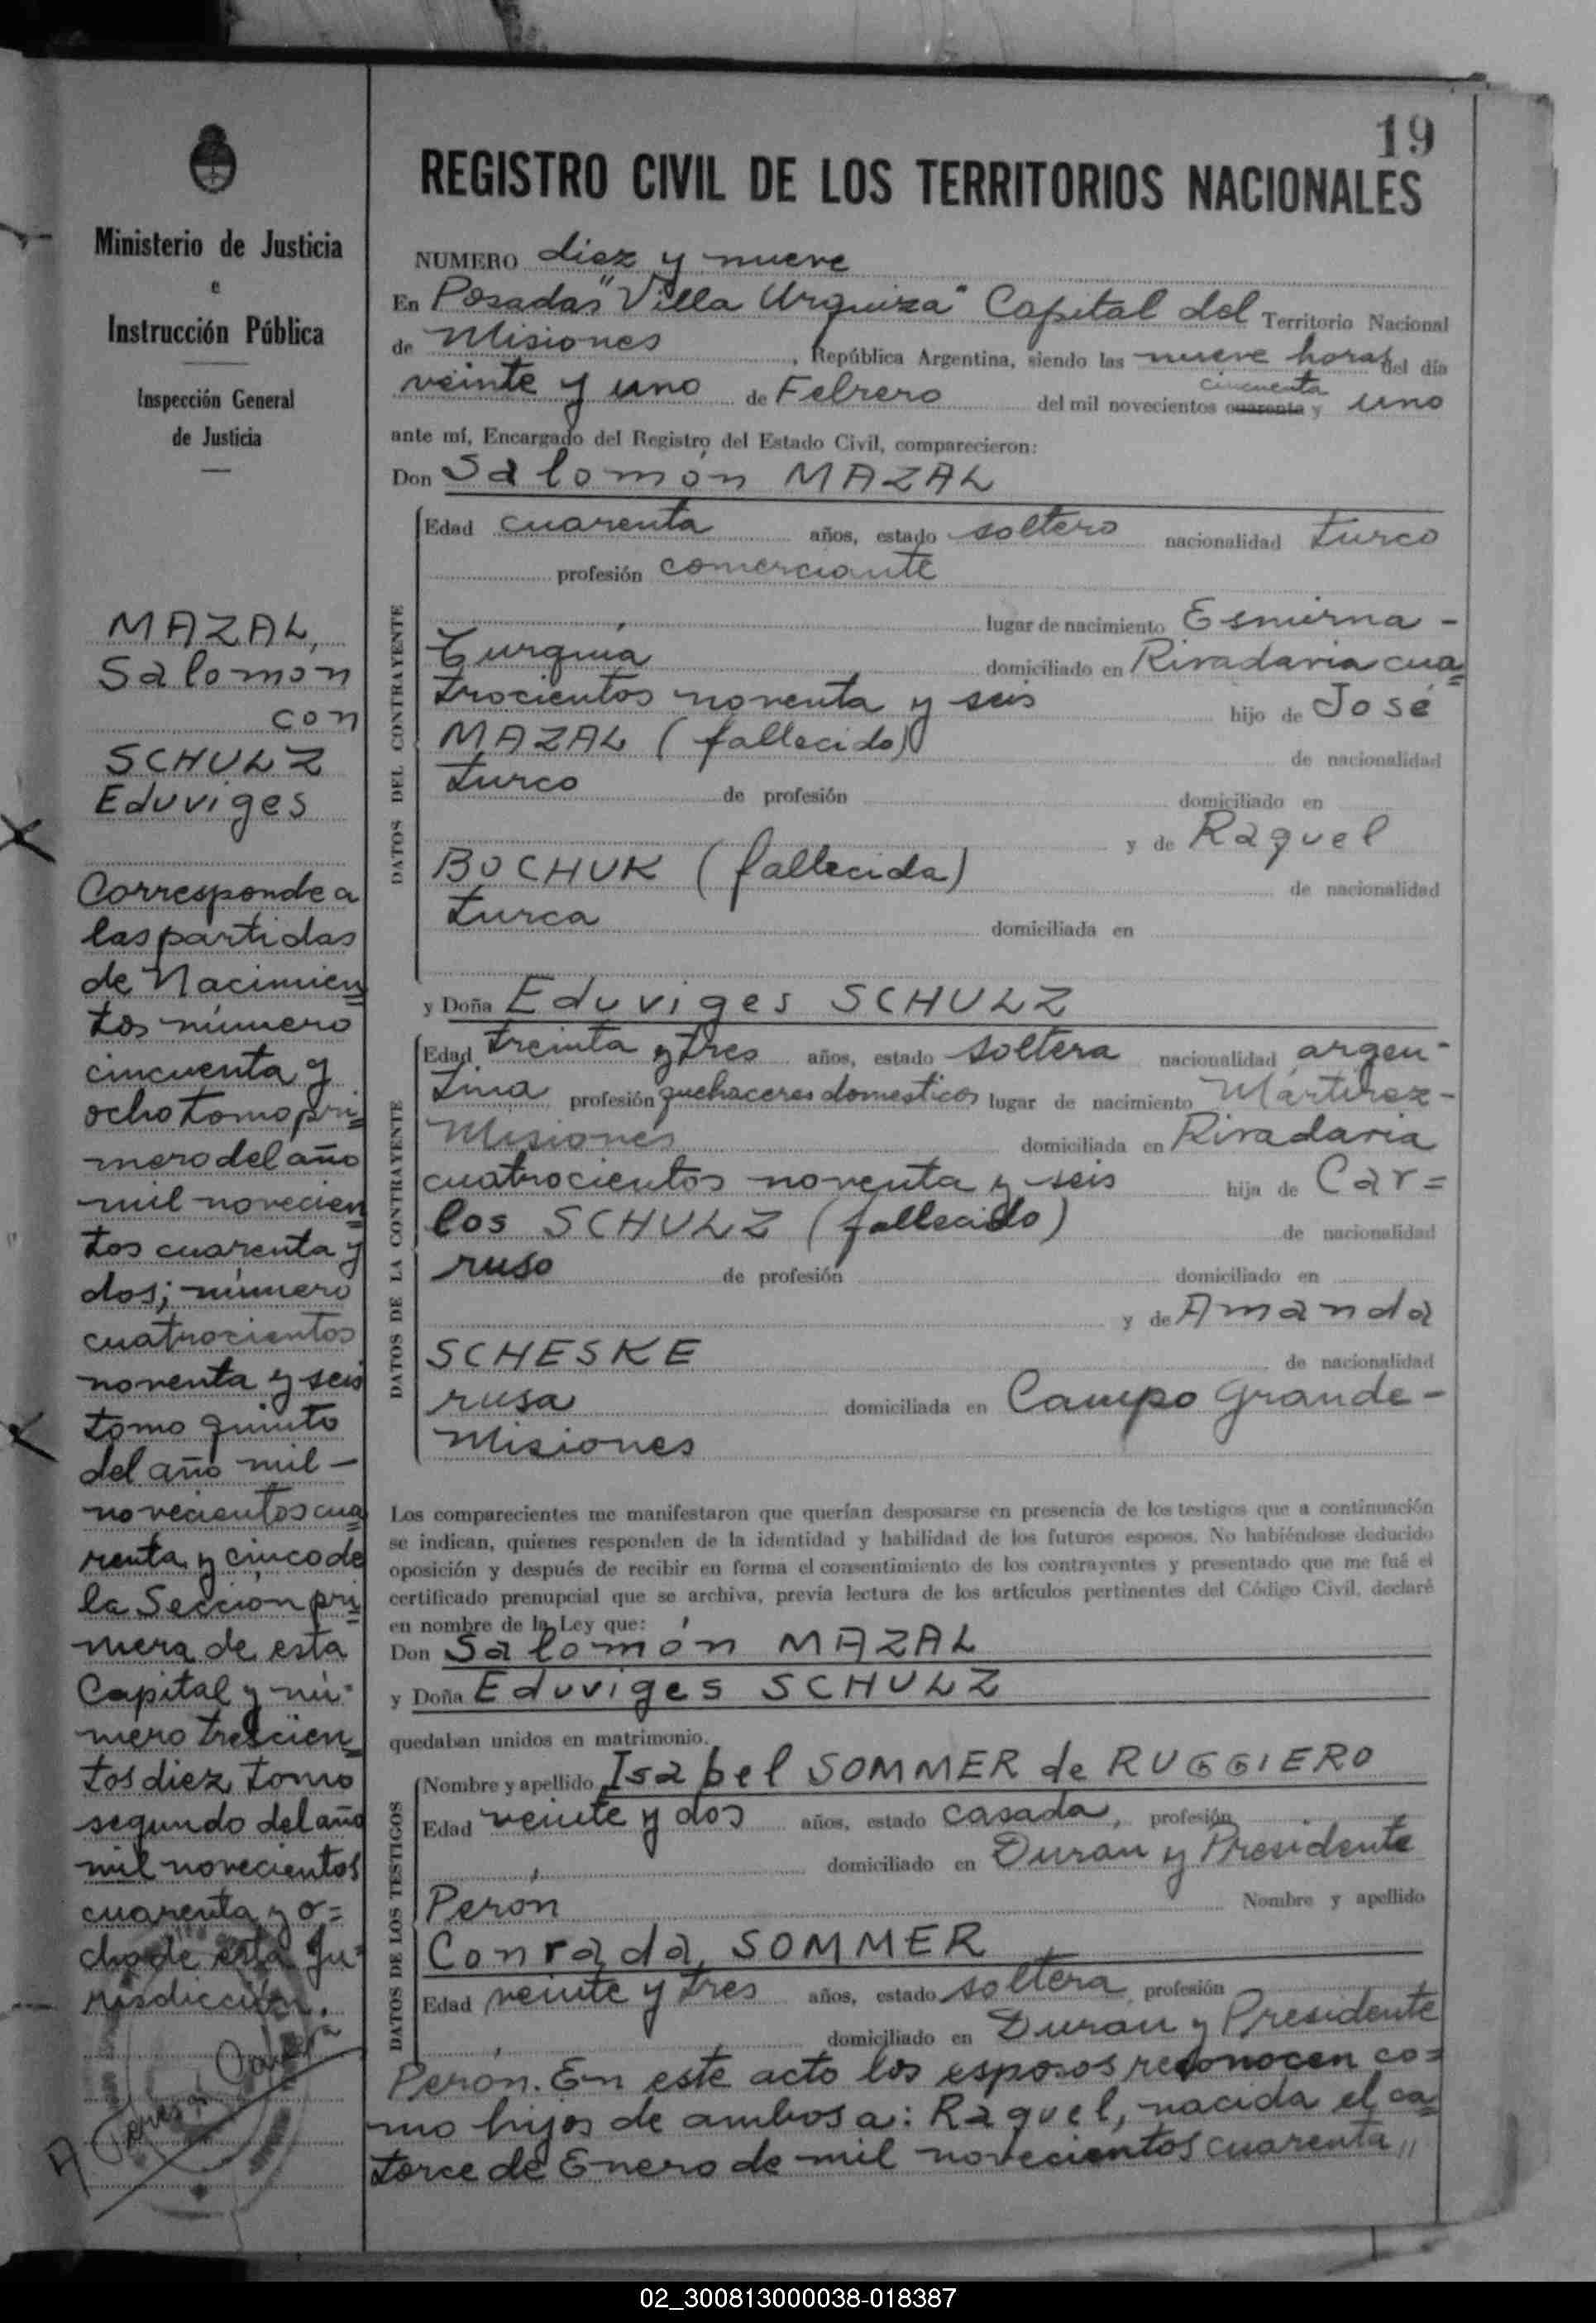 19
REGISTRO CIVIL DE LOS TERRITORIOS NACIONALES
Ministerio de Justicia
e
Instrucción Pública
Inspección General
de Justicia
MAZAL,
Salomon
con
SCHULZ
Eduviges
Corresponde a
las partidas
de Nacimien=
tos número
cincuenta y
ocho tomo pri=
mero del año
mil novecien=
tos cuarenta y
dos; número
cuatrocientos
noventa y seis
tomo quinto
del año mil -
novecientos cua=
renta y cinco de
la Sección pri=
mera de esta
Capital y nú-
mero trescien=
tos diez tomo
segundo del año
mil novecientos
cuarenta y o=
cho de esta Ju=
risdicción.
NUMERO diez y nueve
En Posadas "Villa Urquiza" Capital del Territorio Nacional
de Misiones, República Argentina, siendo las nueve horas del día
cincuenta
veinte y uno de Febrero del mil novecientos cuarenta y uno
ante mí, Encargado del Registro del Estado Civil, comparecieron:
Don Salomón MAZAL
DATOS DEL CONTRAYENTE
Edad cuarenta años, estado soltero nacionalidad turco
profesión comerciante
lugar de nacimiento Esmirna -
Turquía domiciliado en Rivadavia cua=
trocientos noventa y seis hijo de José
MAZAL (fallecido) de nacionalidad
turco de profesión domiciliado en
y de Raquel
BOCHUK (fallecida) de nacionalidad
turca domiciliada en
y Doña Eduviges SCHULZ
DATOS DE LA CONTRAYENTE
Edad treinta y tres años, estado soltera nacionalidad argen-
tina profesión quehaceres domesticos lugar de nacimiento Mártirez -
Misiones domiciliada en Rivadavia
cuatrocientos noventa y seis hija de Car=
los SCHULZ (fallecido) de nacionalidad
ruso de profesión domiciliado en
y de Amanda
SCHESKE de nacionalidad
rusa domiciliada en Campo Grande -
Misiones
Los comparecientes me manifestaron que querían desposarse en presencia de los testigos que a continuación
se indican, quienes responden de la identidad y habilidad de los futuros esposos. No habiéndose deducido
oposición y después de recibir en forma el consentimiento de los contrayentes y presentado que me fué el
certificado prenupcial que se archiva, previa lectura de los artículos pertinentes del Código Civil, declaré
en nombre de la Ley que:
Don Salomón MAZAL
y Doña Eduviges SCHULZ
quedaban unidos en matrimonio.
DATOS DE LOS TESTIGOS
Nombre y apellido Isabel SOMMER de RUGGIERO
Edad veinte y dos años, estado casada, profesión
domiciliado en Duran y Presidente
Peron Nombre y apellido
Conrada SOMMER
Edad veinte y tres años, estado soltera, profesión
domiciliado en Duran y Presidente
Perón. En este acto los esposos reconocen co=
mo hijos de ambos a: Raquel, nacida el ca=
torce de Enero de mil novecientos cuarenta,,
02_300813000038-018387